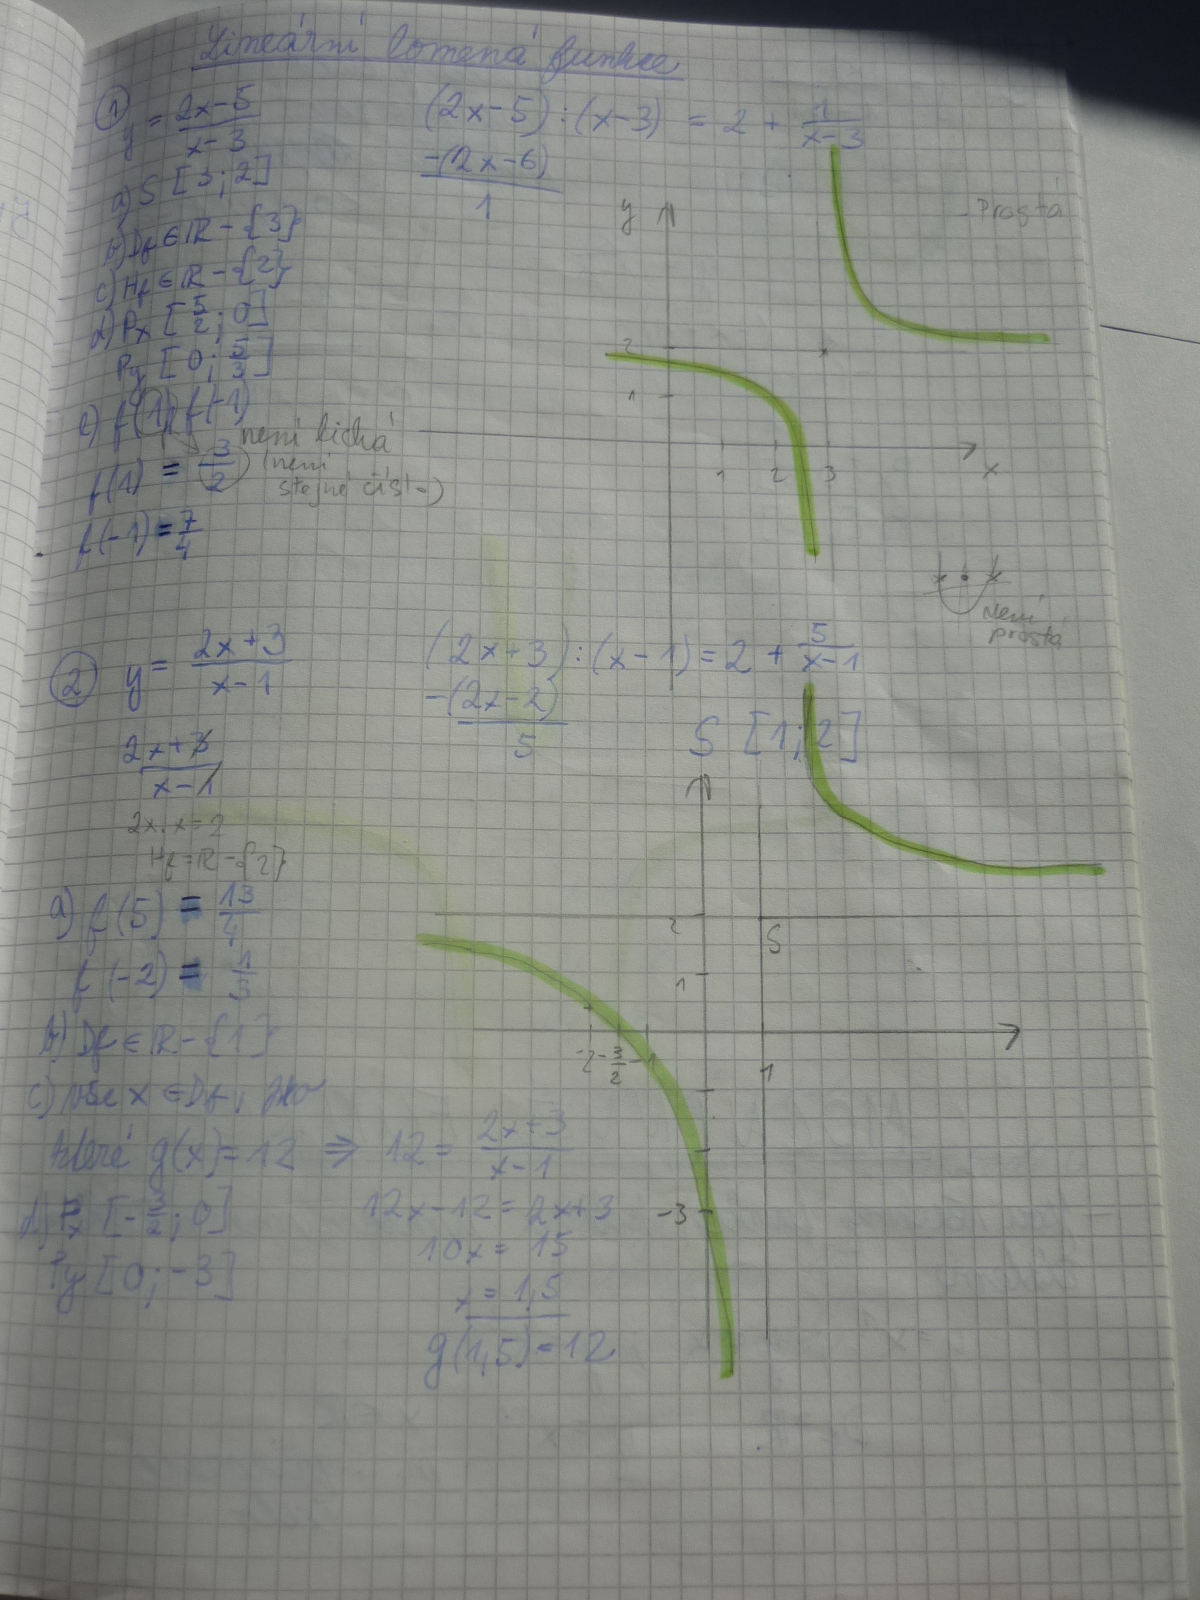 Lineární lomená funkce
① y = (2x-5)/(x-3)
(2x-5):(x-3) = 2 + 1/(x-3)
-(2x-6)
1
a) S [3;2]
b) Df ∈ ℝ - {3}
c) Hf ∈ ℝ - {2}
d) Px [5/2; 0]
Py [0; 5/3]
e) f(1), f(-1)
není lichá
(není
stejné čísl-)
f(1) = 3/2
f(-1) = 7/4
y
Prostá
2
1
1 2 3
x
není
prostá
② y = (2x+3)/(x-1)
(2x+3):(x-1) = 2 + 5/(x-1)
-(2x-2)
5
S [1;2]
(2x+3)/(x-1)
2x:x=2
Hf = ℝ - {2}
a) f(5) = 13/4
f(-2) = 1/3
b) Df ∈ ℝ - {1}
c) x ∈ Df, pro
které g(x)=12 ⇒ 12 = (2x+3)/(x-1)
12x-12 = 2x+3
10x = 15
x = 1,5
g(1,5) = 12
d) Px [-3/2; 0]
Py [0; -3]
2
S
1
-2 -3/2 -1
1
-3